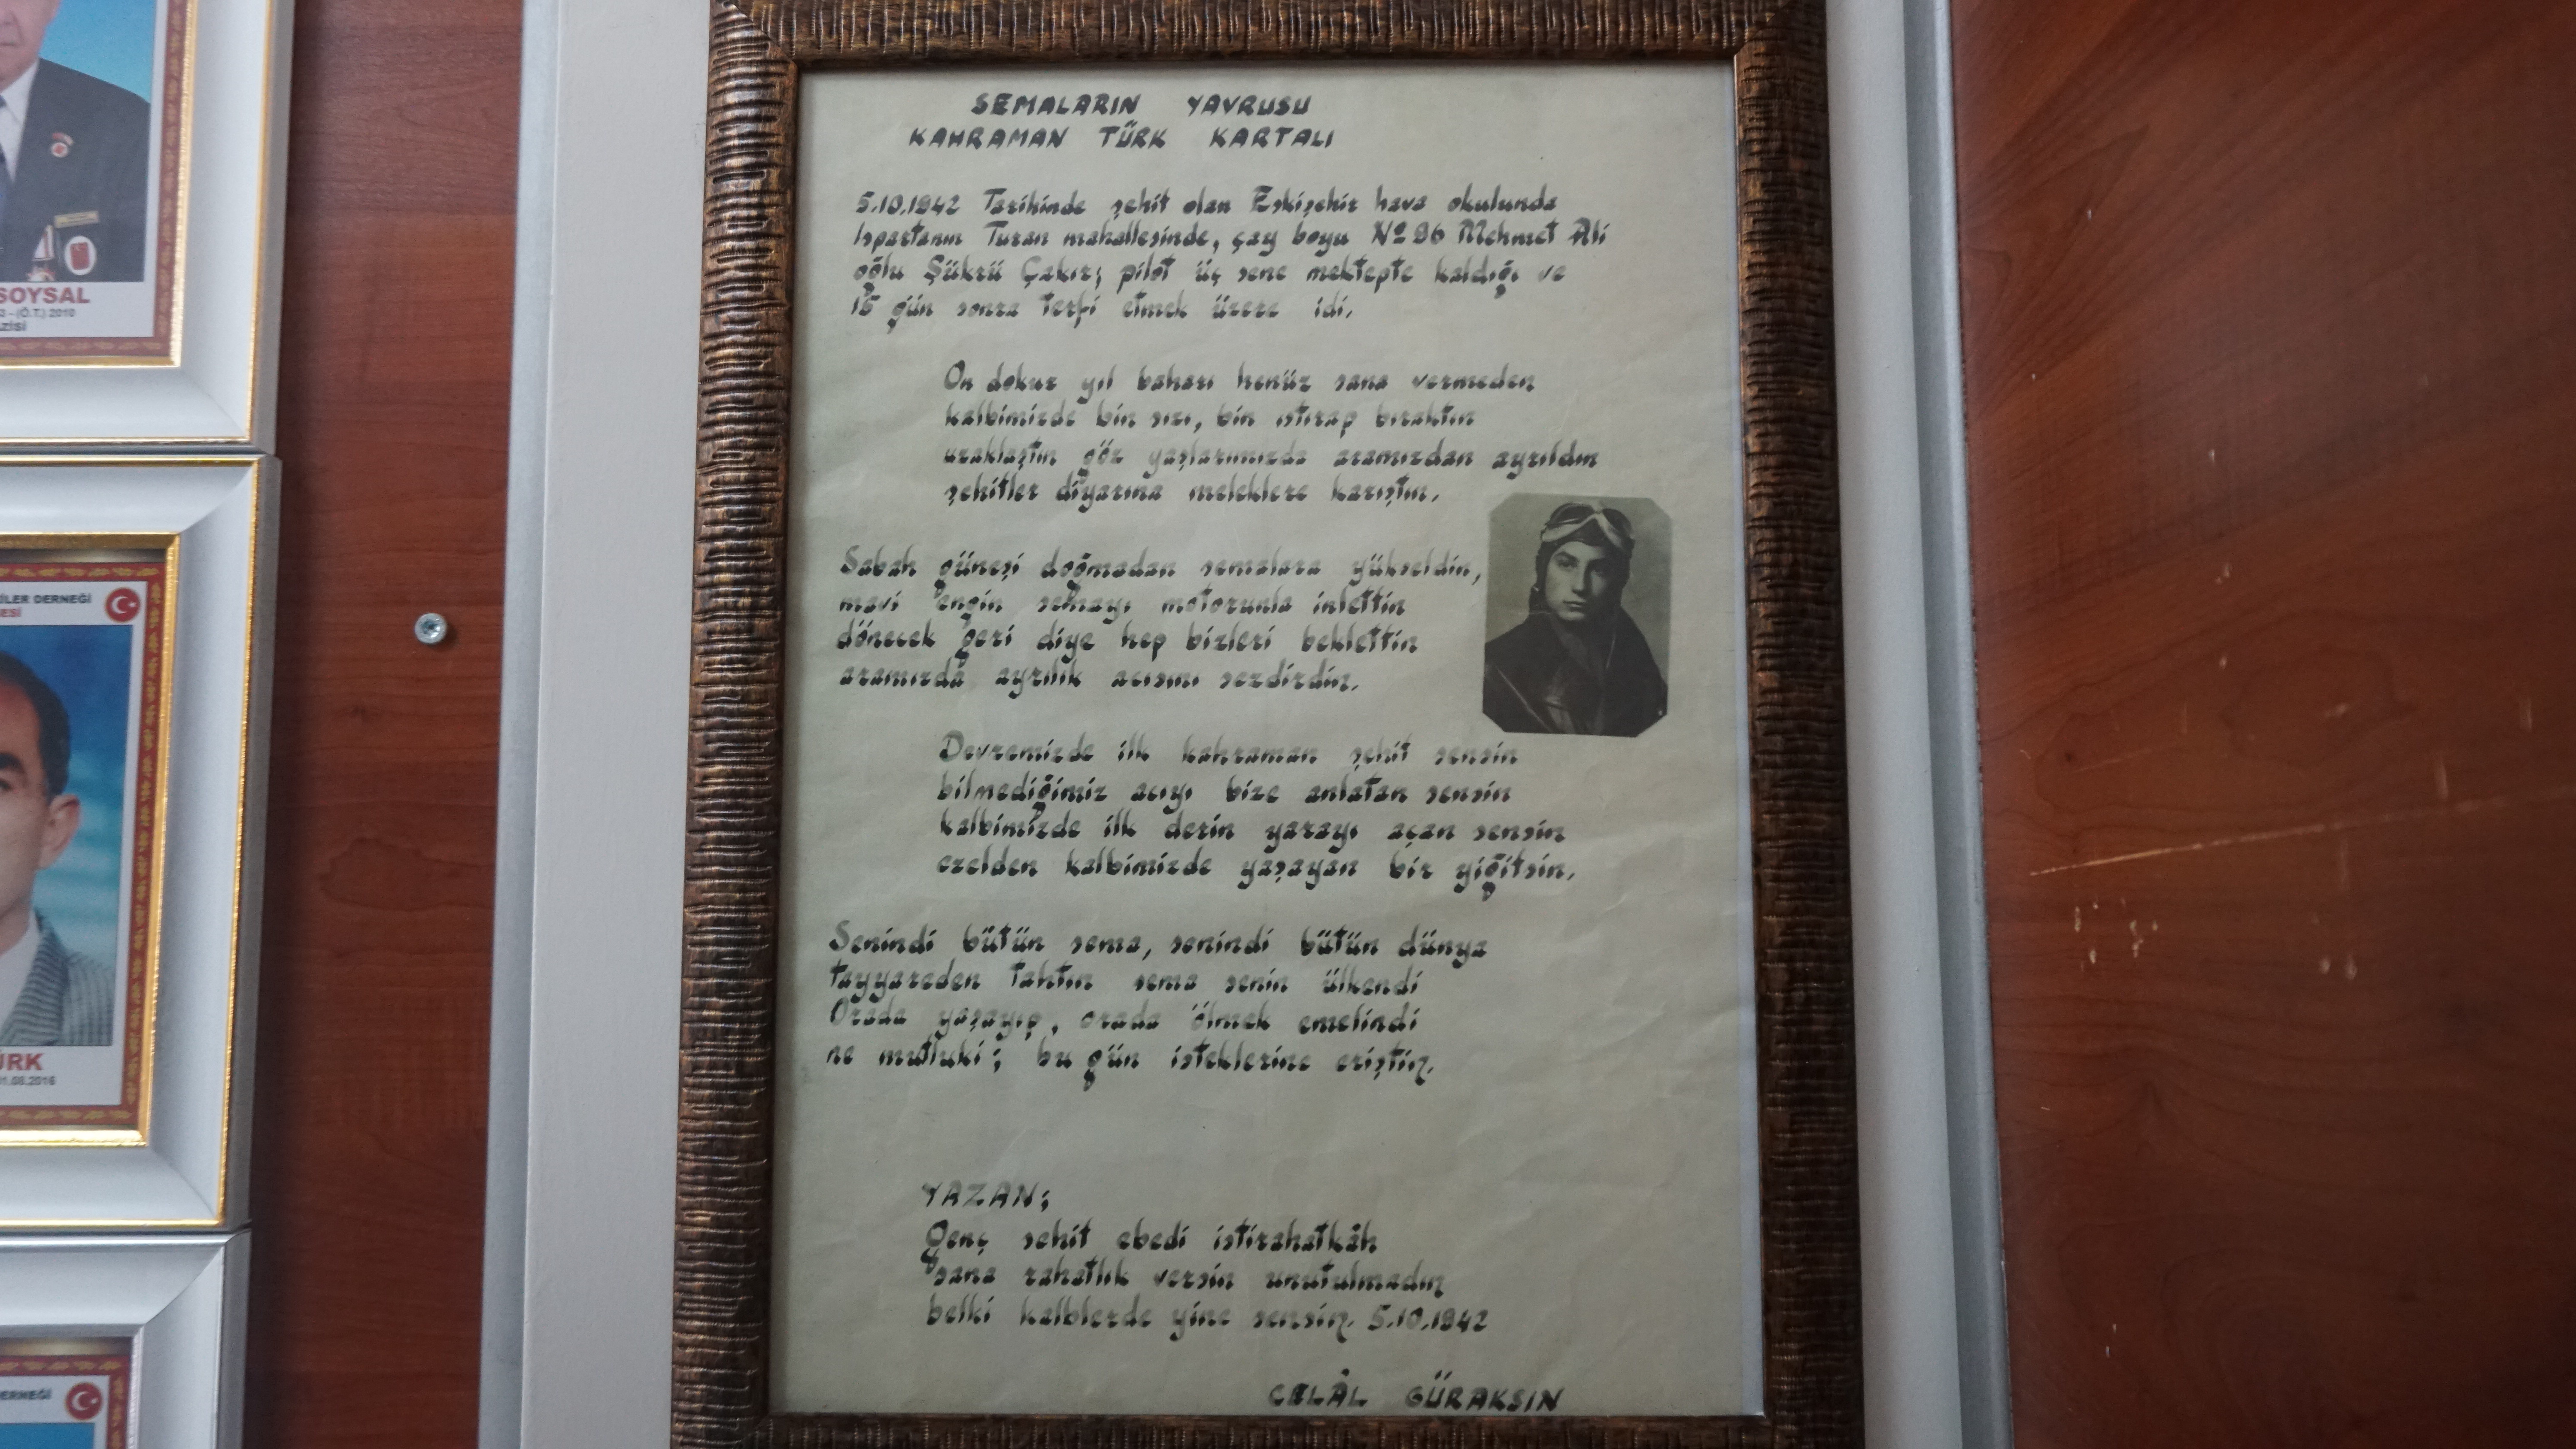 SEMALARIN YAVRUSU
KAHRAMAN TÜRK KARTALI
5.10.1942 Tarihinde şehit olan Eskişehir hava okulunda
Ispartanın Turan mahallesinde, çay boyu No 96 Mehmet Ali
oğlu Şükrü Çakır; pilot üç sene mektepte kaldığı ve
15 gün sonra terfi etmek üzere idi.
On dokuz yıl baharı henüz sana vermeden
kalbimizde bin sızı, bin ıstırap bıraktın
uzaklaştın göz yaşlarımızda aramızdan ayrıldın
şehitler diyarına meleklere karıştın.
Sabah güneşi doğmadan semalara yükseldin,
mavi engin semayı motorunla inlettin
dönecek geri diye hep bizleri beklettin
aramızda ayrılık acısını sezdirdin.
Devremizde ilk kahraman şehit sensin
bilmediğimiz acıyı bize anlatan sensin
kalbimizde ilk derin yarayı açan sensin
ezelden kalbimizde yaşayan bir yiğitsin.
Senindi bütün sema, senindi bütün dünya
tayyareden tahtın sema senin ülkendi
Orada yaşayıp, orada ölmek emelindi
ne mutluki; bu gün isteklerine eriştin.
YAZAN;
Genç sehit ebedi istirahatkâh
sana rahatlık versin unutulmadın
belki kalblerde yine sensin. 5.10.1942
CELÂL GÜRAKSIN
SOYSAL
3 - (Ö.T.) 2010
ZİSİ
İLER DERNEĞİ
ESİ
ÜRK
01.08.2016
DERNEĞİ